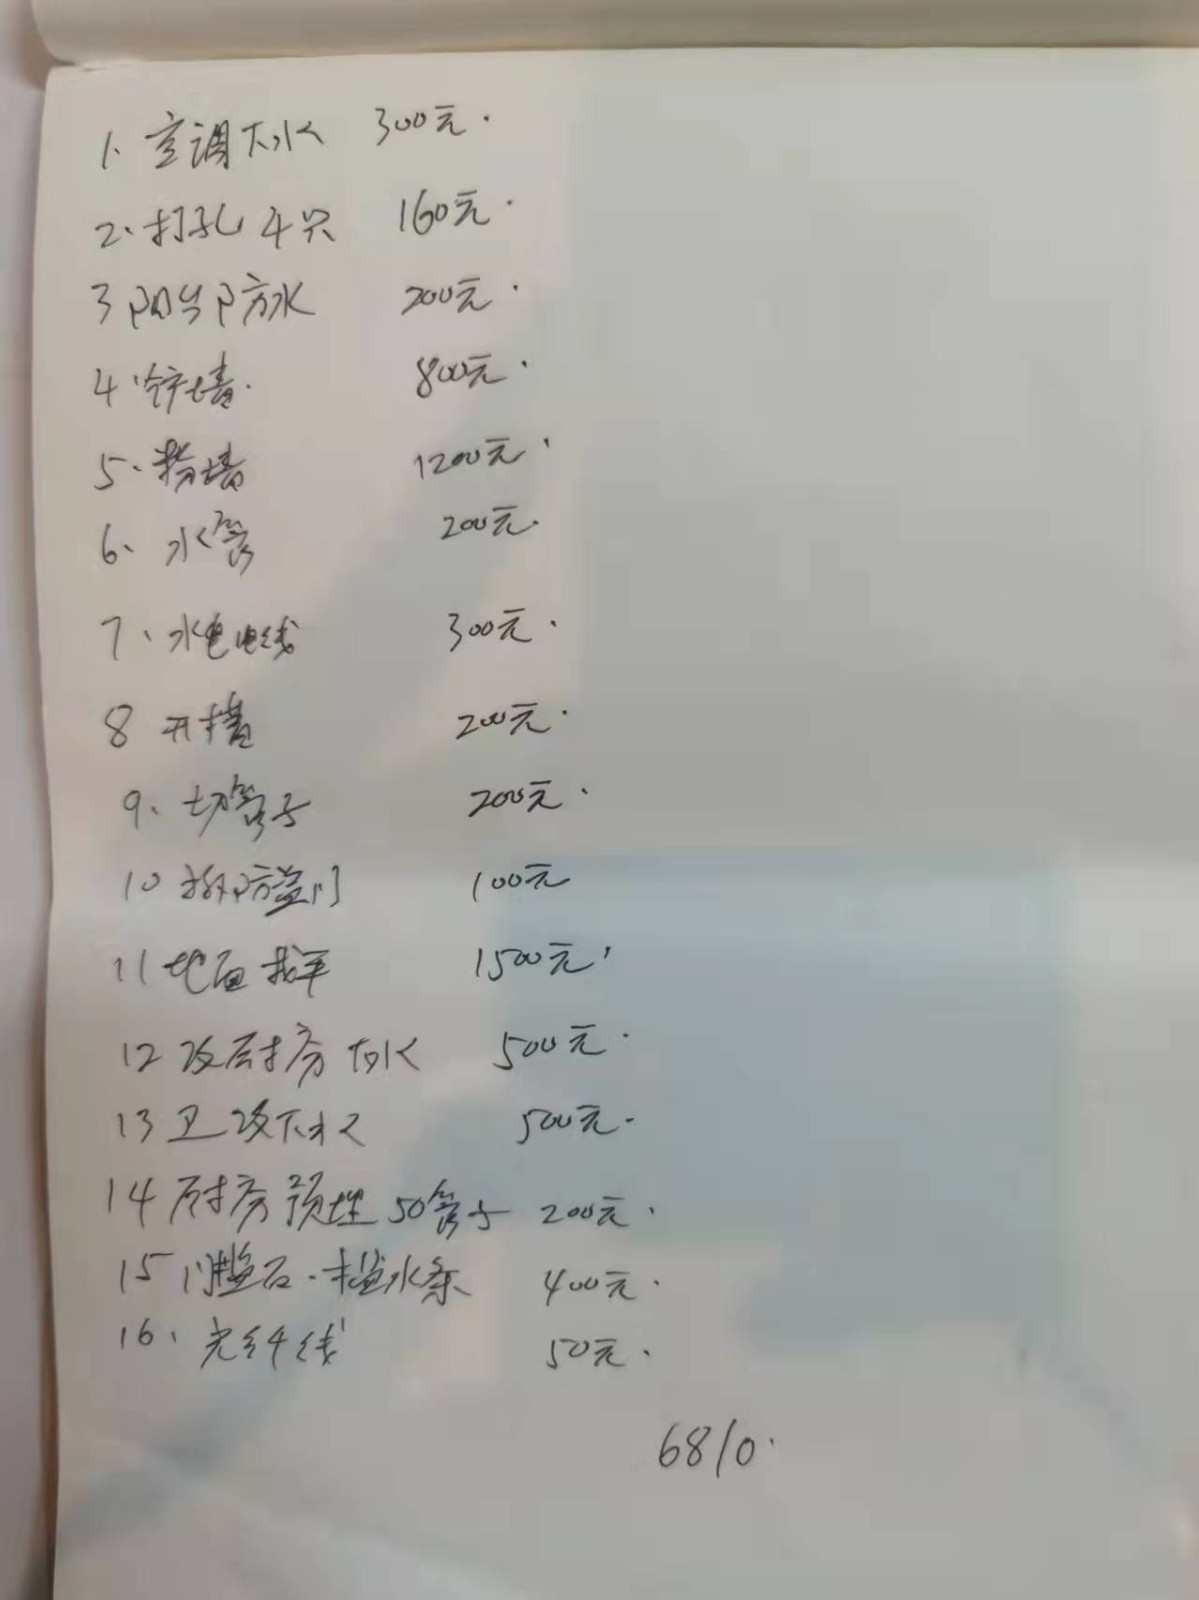 1、空调下水 300元.
2、打孔4只 160元.
3 阳台防水 200元.
4、砖墙. 800元.
5、粉墙 1200元.
6、水管 200元.
7、水电电线 300元.
8 开槽 200元.
9、切管子 200元.
10 拆防盗门 100元
11 地面找平 1500元.
12 改厨房下水 500元.
13 卫改下水 500元.
14 厨房预埋50管子 200元.
15 门槛石.挡水条 400元.
16、光纤线 50元.
6810.